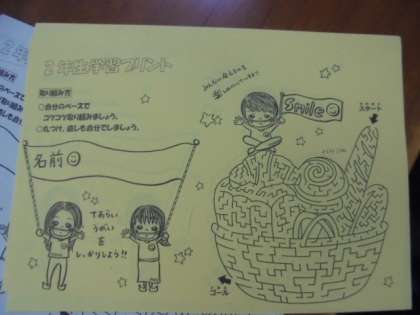 2年生学習プリント
取り組み方
○自分のペースで
コツコツ取り組みましょう。
○丸つけ、直しも自分でしましょう。
Smile
スタート
名前
手あらい
うがい
を
しっかりしよう!!
ゴール